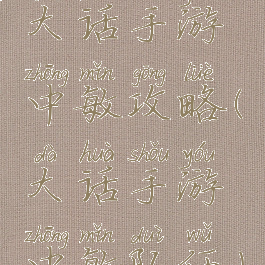 大话手游
zhōng mǐn gōng lüè
中敏攻略(
dà huà shǒu yóu
大话手游
zhōng mǐn duì wǔ